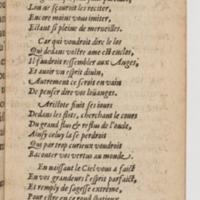 Lon ne sçauroit les reciter,
Encore moins vous imiter,
Estant si pleine de merueilles.
Car qui voudroit dire le los
Qui dedans vostre ame est enclos,
Il faudroit ressembler aux Anges,
Et auoir vn esprit diuin,
Autrement ce seroit en vain
De penser dire voz loüanges.
Aristote finit ses iours
Dedans les flots, cherchant le cours
Du grand flus & reflus de l'onde,
Ainsy celuy la se perdroit
Qui par trop curieux voudroit
Raconter voz vertus au monde.
En naissant le Ciel vous a faict
En voz grandeurs l'esprit parfaict,
Et remply de sagesse extréme,